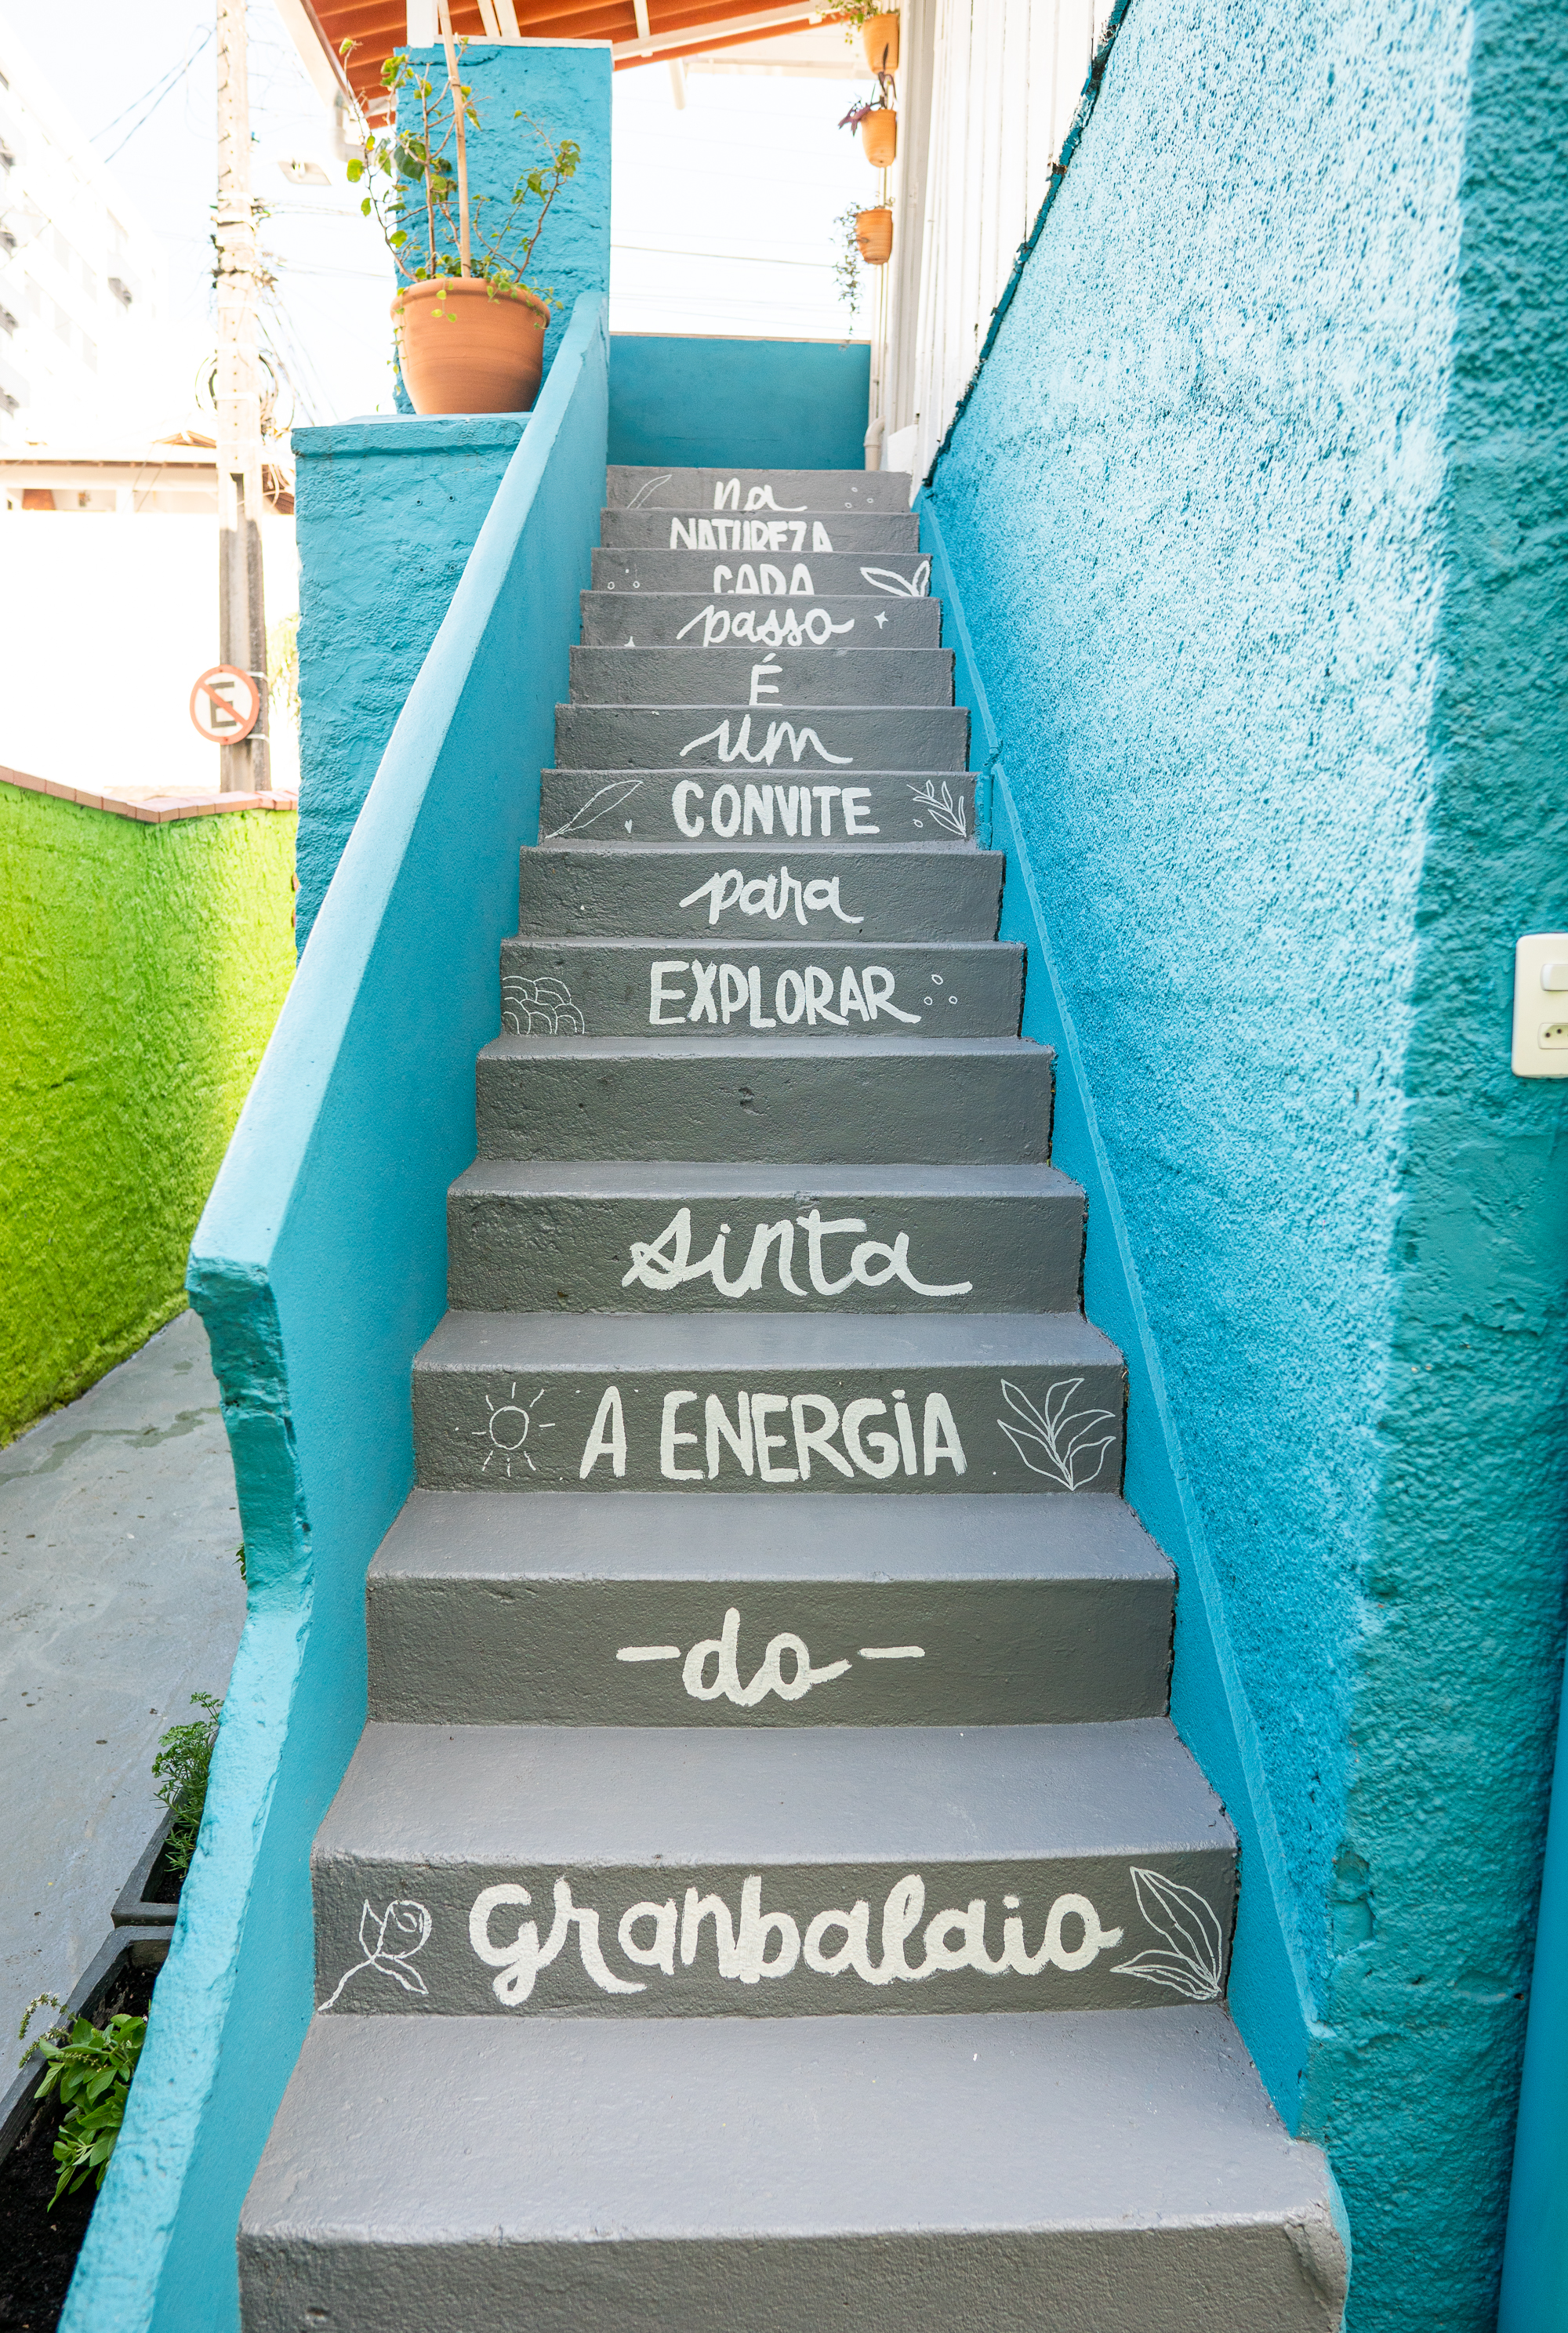 na
NATUREZA
CADA
passo
É
um
CONVITE
para
EXPLORAR
sinta
A ENERGIA
-do-
granbalaio
E